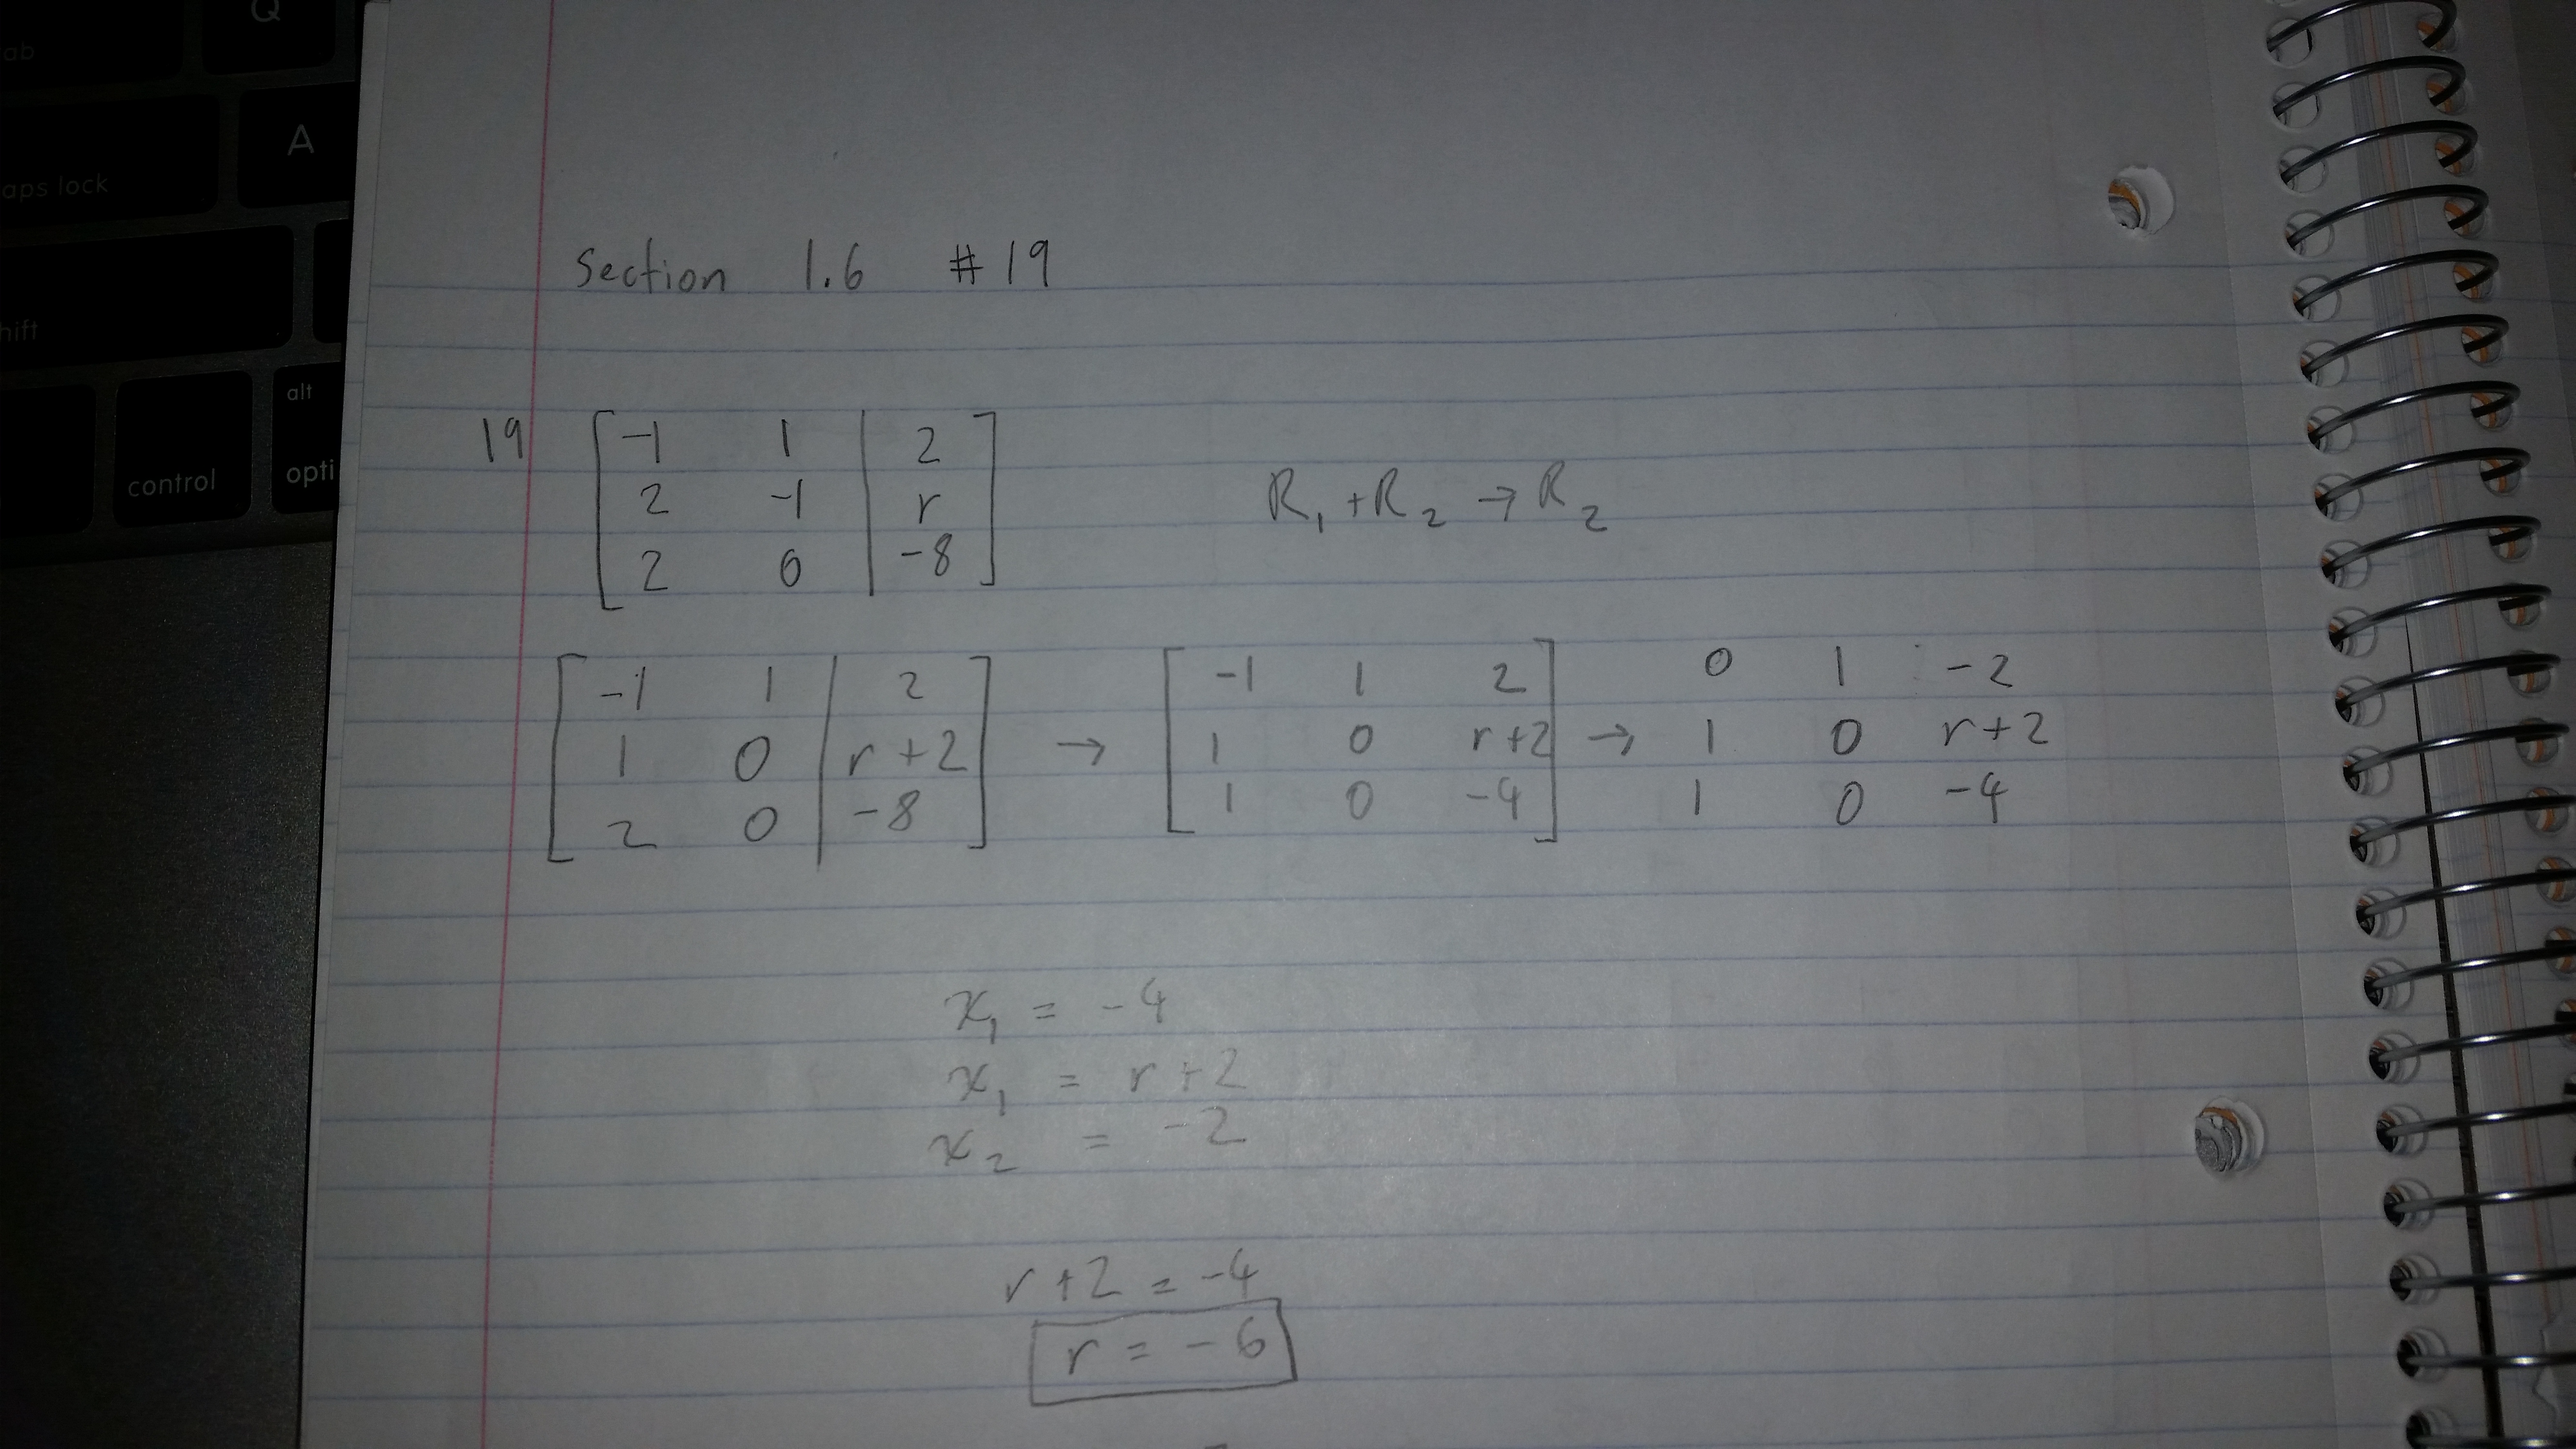 Q
tab
A
caps lock
shift
alt
control
opti
Section 1.6 #19
19 [ -1 1 | 2 ]
[ 2 -1 | r ] R₁ + R₂ → R₂
[ 2 0 | -8 ]
[ -1 1 | 2 ] [ -1 1 2 ] 0 1 -2
[ 1 0 | r+2 ] → [ 1 0 r+2 ] → 1 0 r+2
[ 2 0 | -8 ] [ 1 0 -4 ] 1 0 -4
x₁ = -4
x₁ = r+2
x₂ = -2
r+2 = -4
r = -6